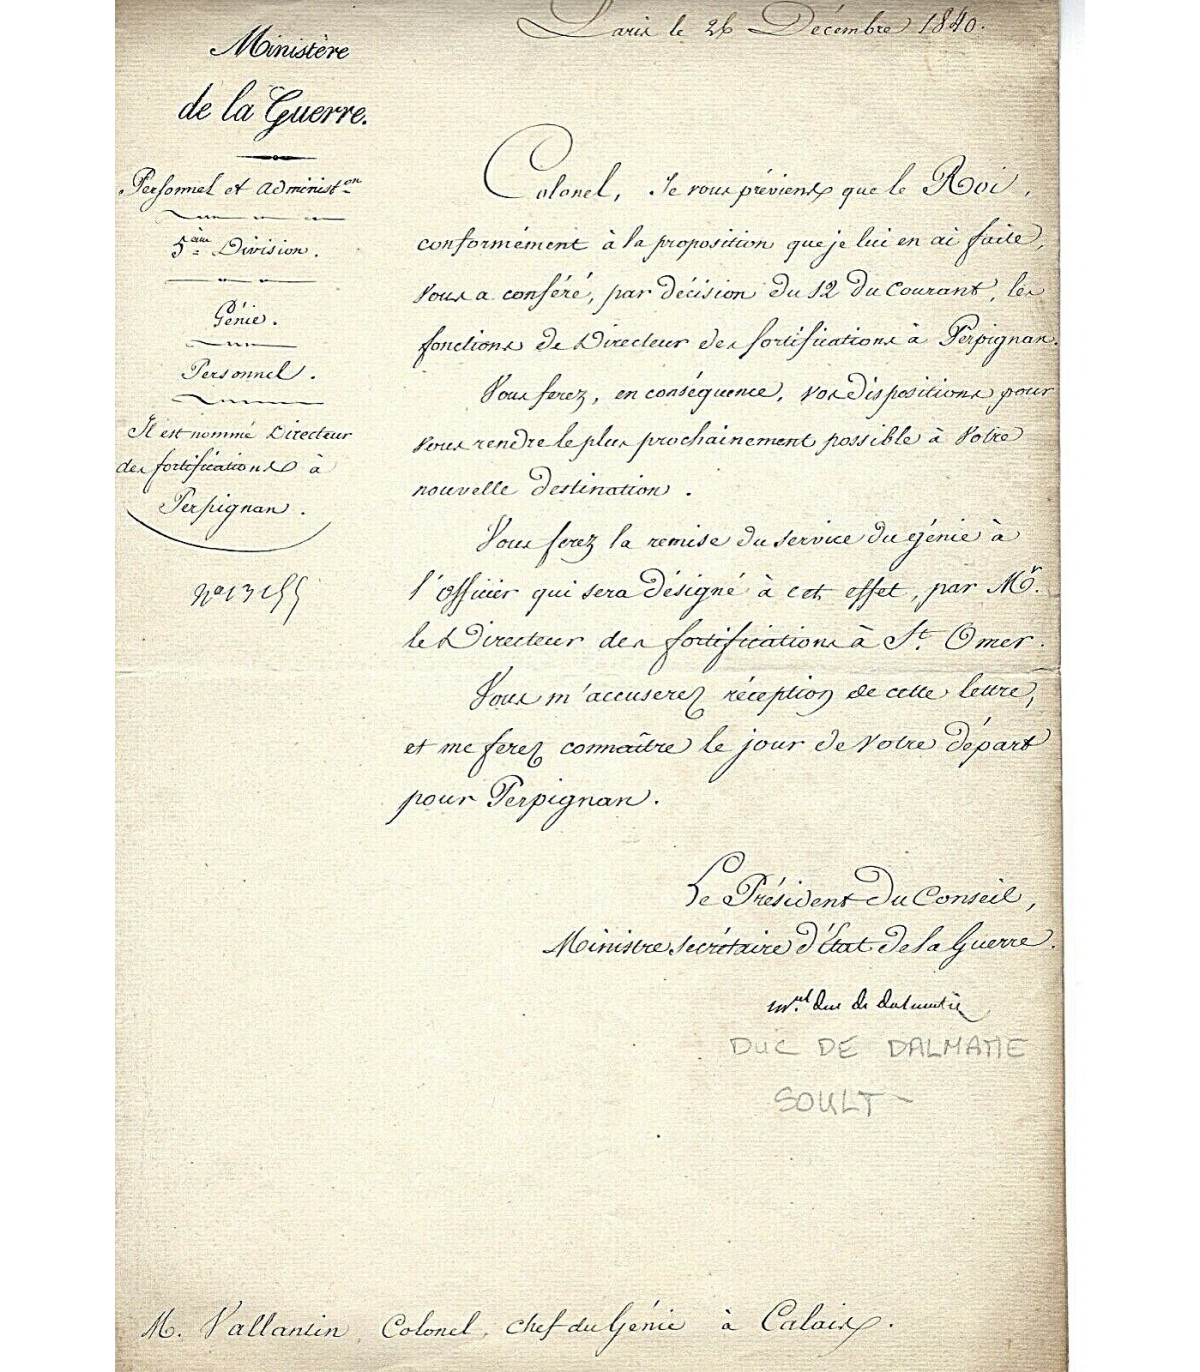 Paris le 26 Décembre 1840.
Ministère
de la Guerre.
Personnel et administ.on
5ème Division.
Génie.
Personnel.
Il est nommé Directeur
des fortifications à
Perpignan.
Colonel, Je vous préviens que le Roi,
conformément à la proposition que je lui en ai faite,
vous a conféré, par décision du 12 du courant, les
fonctions de Directeur des fortifications à Perpignan.
Vous ferez, en conséquence, vos dispositions pour
vous rendre le plus prochainement possible à votre
nouvelle destination.
Vous ferez la remise du service du génie à
l'officier qui sera désigné à cet effet, par Mr.
le Directeur des fortifications à St. Omer.
Vous m'accuserez réception de cette lettre,
et me ferez connaître le jour de votre départ
pour Perpignan.
Le Président du Conseil,
Ministre secrétaire d'État de la Guerre.
Mal. duc de dalmatie
DUC DE DALMATIE
SOULT -
M. Vallantin, Colonel, chef du Génie à Calais.